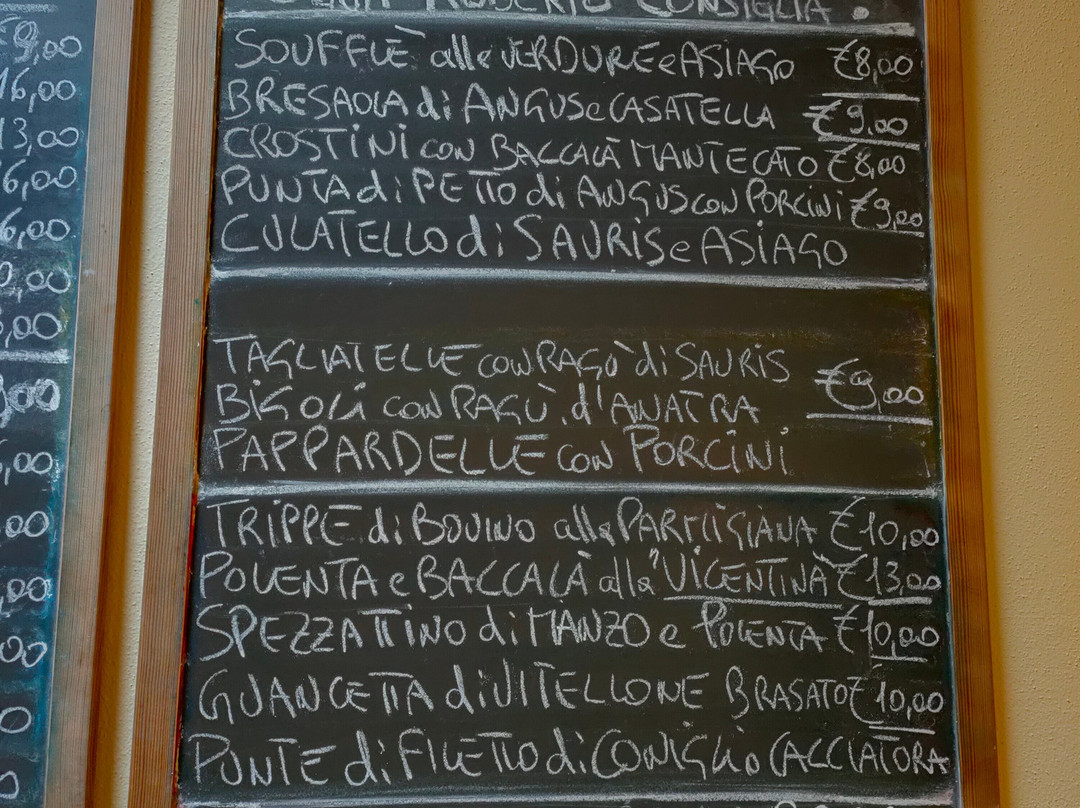 ROBERTO CONSIGLIA.
SOUFFLÈ alle VERDURE e ASIAGO €8,00
BRESAOLA di ANGUS e CASATELLA €9,00
CROSTINI CON BACCALÀ MANTECATO €8,00
PUNTA di PETTO di ANGUS CON PORCINI €9,00
CULATELLO di SAURIS e ASIAGO
TAGLIATELLE CON RAGÒ di SAURIS
BIGOLI CON RAGÙ d'ANATRA €9,00
PAPPARDELLE CON PORCINI
TRIPPE di BOVINO alla PARMIGIANA €10,00
POLENTA e BACCALÀ alla "VICENTINA" €13,00
SPEZZATTINO di MANZO e POLENTA €10,00
GUANCETTA di VITELLONE BRASATO €10,00
PUNTE di FILETTO di CONIGLIO CACCIATORA
€9,00
16,00
13,00
6,00
6,00
0,00
,00
,00
,00
,00
,00
00
0